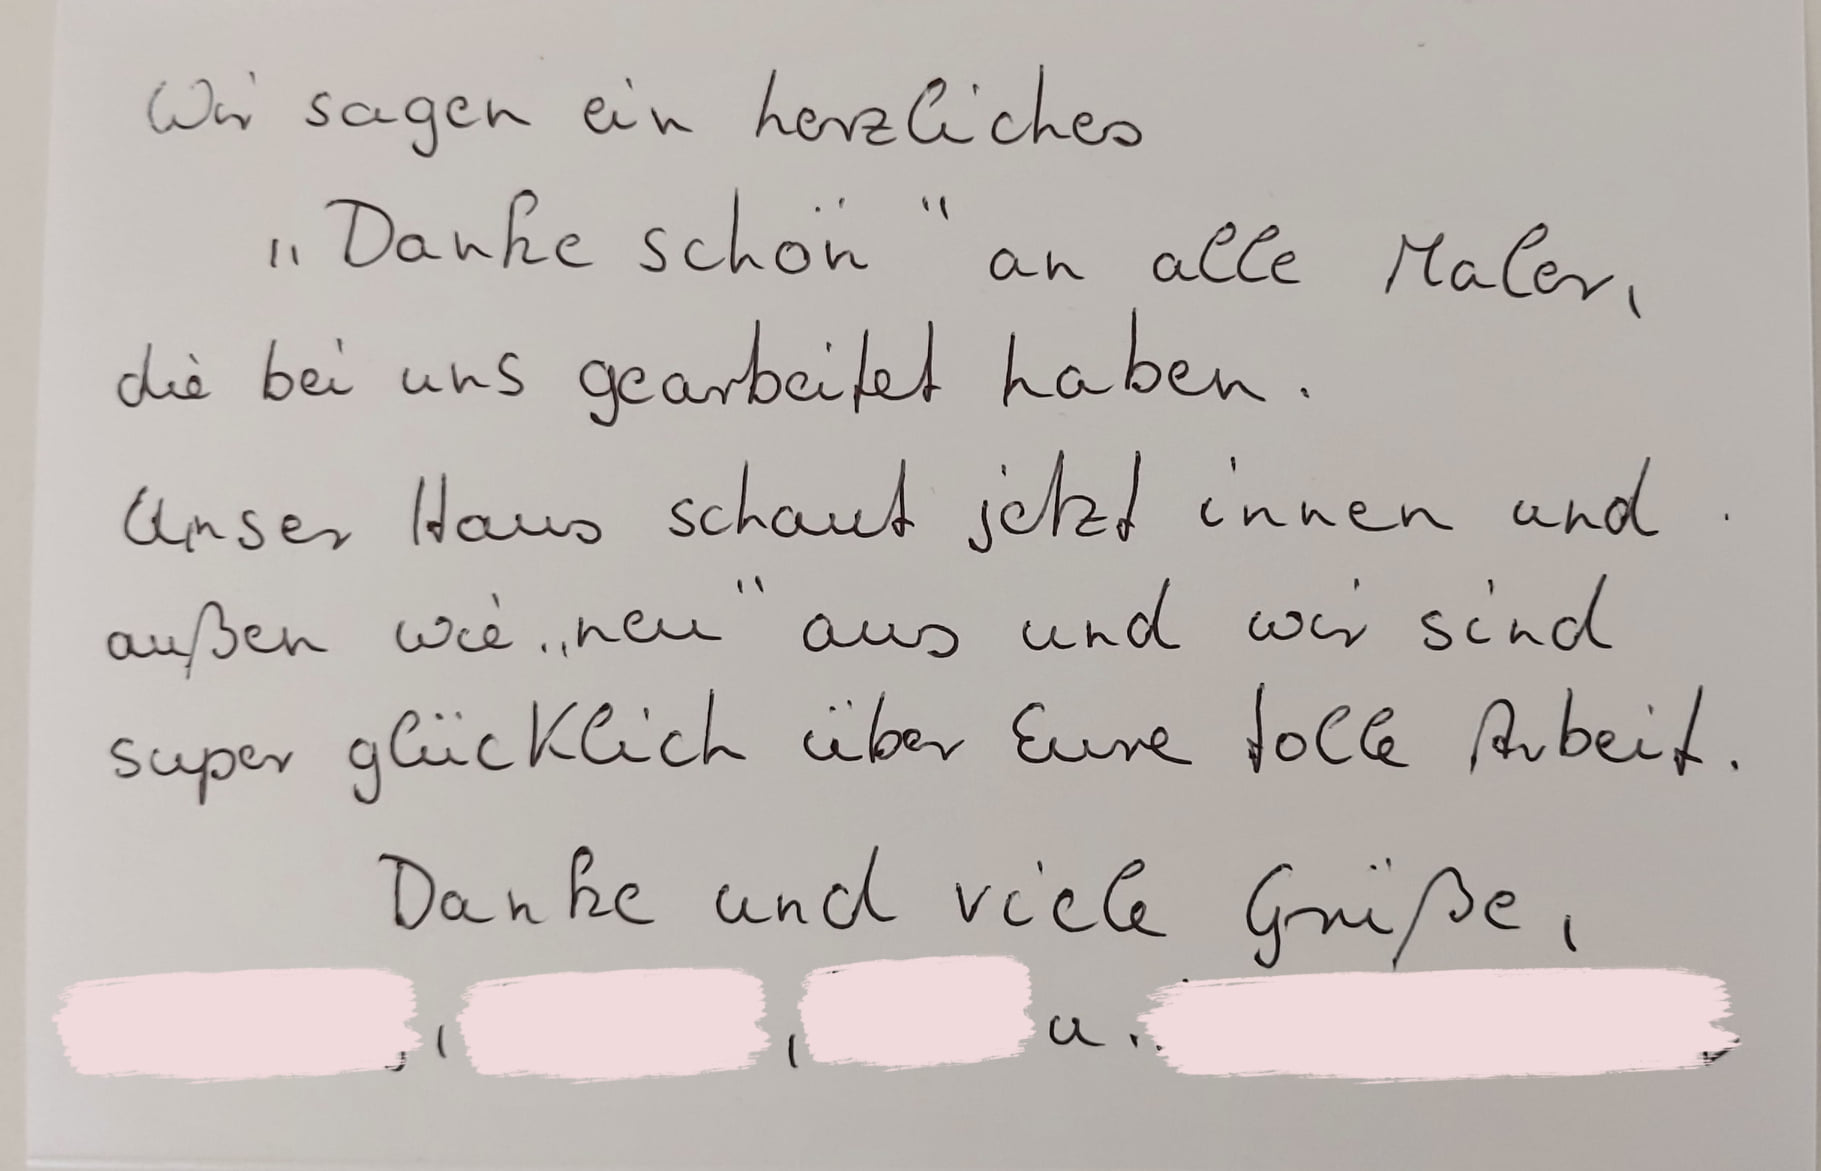 Wir sagen ein herzliches
„Danke schön" an alle Maler,
die bei uns gearbeitet haben.
Unser Haus schaut jetzt innen und
außen wie „neu" aus und wir sind
super glücklich über Eure tolle Arbeit.
Danke und viele Grüße,
, , u.